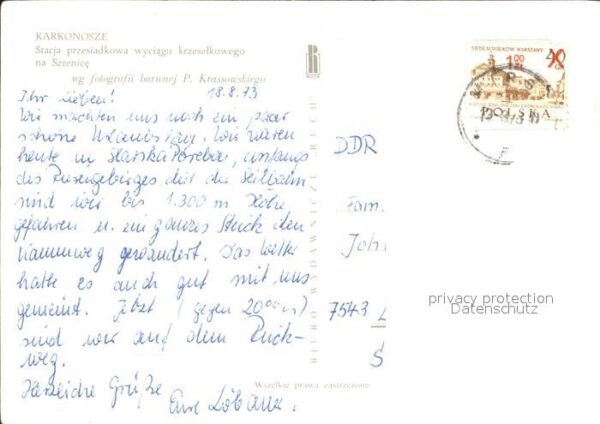 KARKONOSZE
Stacja przesiadkowa wyciągu krzesełkowego
na Szrenicę
wg fotografii barwnej P. Krassowskiego
18.8.73
Ihr Lieben!
Wir machten uns noch ein paar
schöne Urlaubstage. Wir waren
heute in Sklarska Poreba,
des Riesengebirges. Mit der Seilbahn
sind wir bis 1.300 m Höhe
gefahren u. ein ganzes Stück den
Kammweg gewandert. Das Wetter
hatte es auch gut mit uns
gemeint. Jetzt (gegen 20 00)
sind wir auf dem Rück-
weg.
Herzliche Grüße
Eure
BIURO WYDAWNICZE RUCH
Wszelkie prawa zastrzeżone
SIEDEM WIEKÓW WARSZAWY
1 00
ZŁ
40
POLSKA
DDR
Fam.
Joh
7543 L
privacy protection
Datenschutz